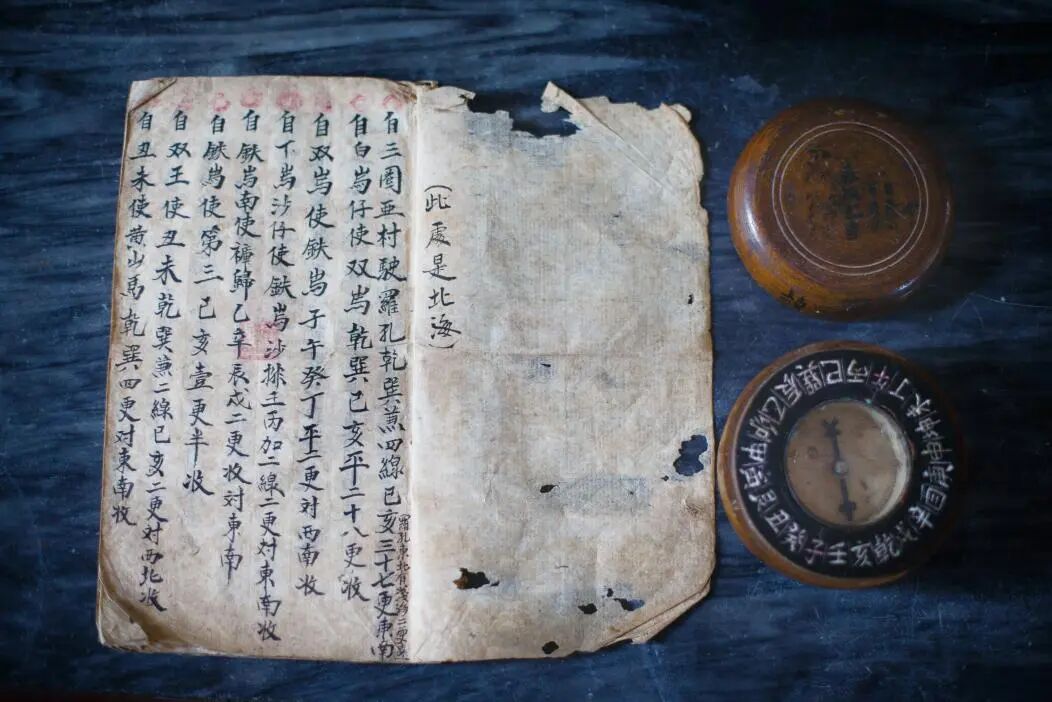 (此處是北海)
自三圈亚村駛羅孔乾巽兼四線已亥三十七更東南
羅孔東北有浅
自白峙仔使双峙乾巽已亥平二十八更收
自双峙使鉄峙子午癸丁平二更对西南收
自下峙沙仔使鉄峙沙排壬丙加二線二更对東南收
自鉄峙南使歸乙辛辰戌二更收对東南
自鉄峙使第三已亥壹更半收
自双王使丑未乾巽兼二線已亥二更对西北收
自丑未使黄山馬乾巽四更对東南收
子癸丑艮寅甲卯乙辰巽巳丙午丁未坤申庚酉辛戌乾亥壬